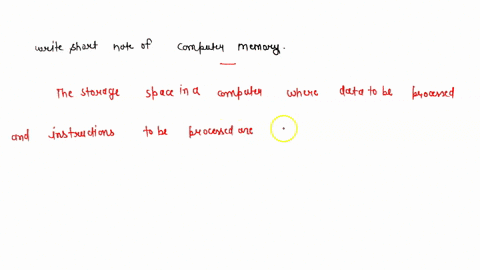 write short note of computer memory.
The storage space in a computer where data to be processed
and instructions to be processed are